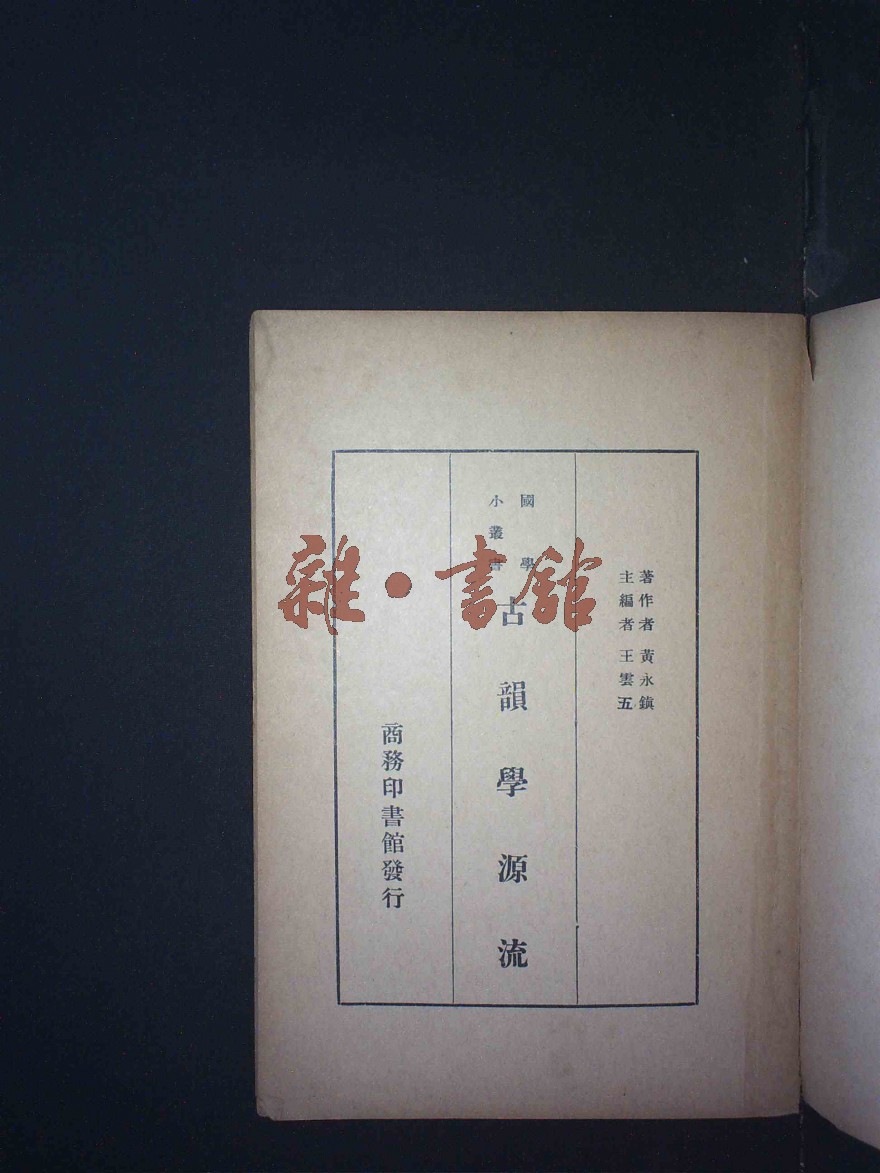 著作者 黃永鎮
主編者 王雲五
國學
小叢書
古韻學源流
商務印書館發行
雜·書館